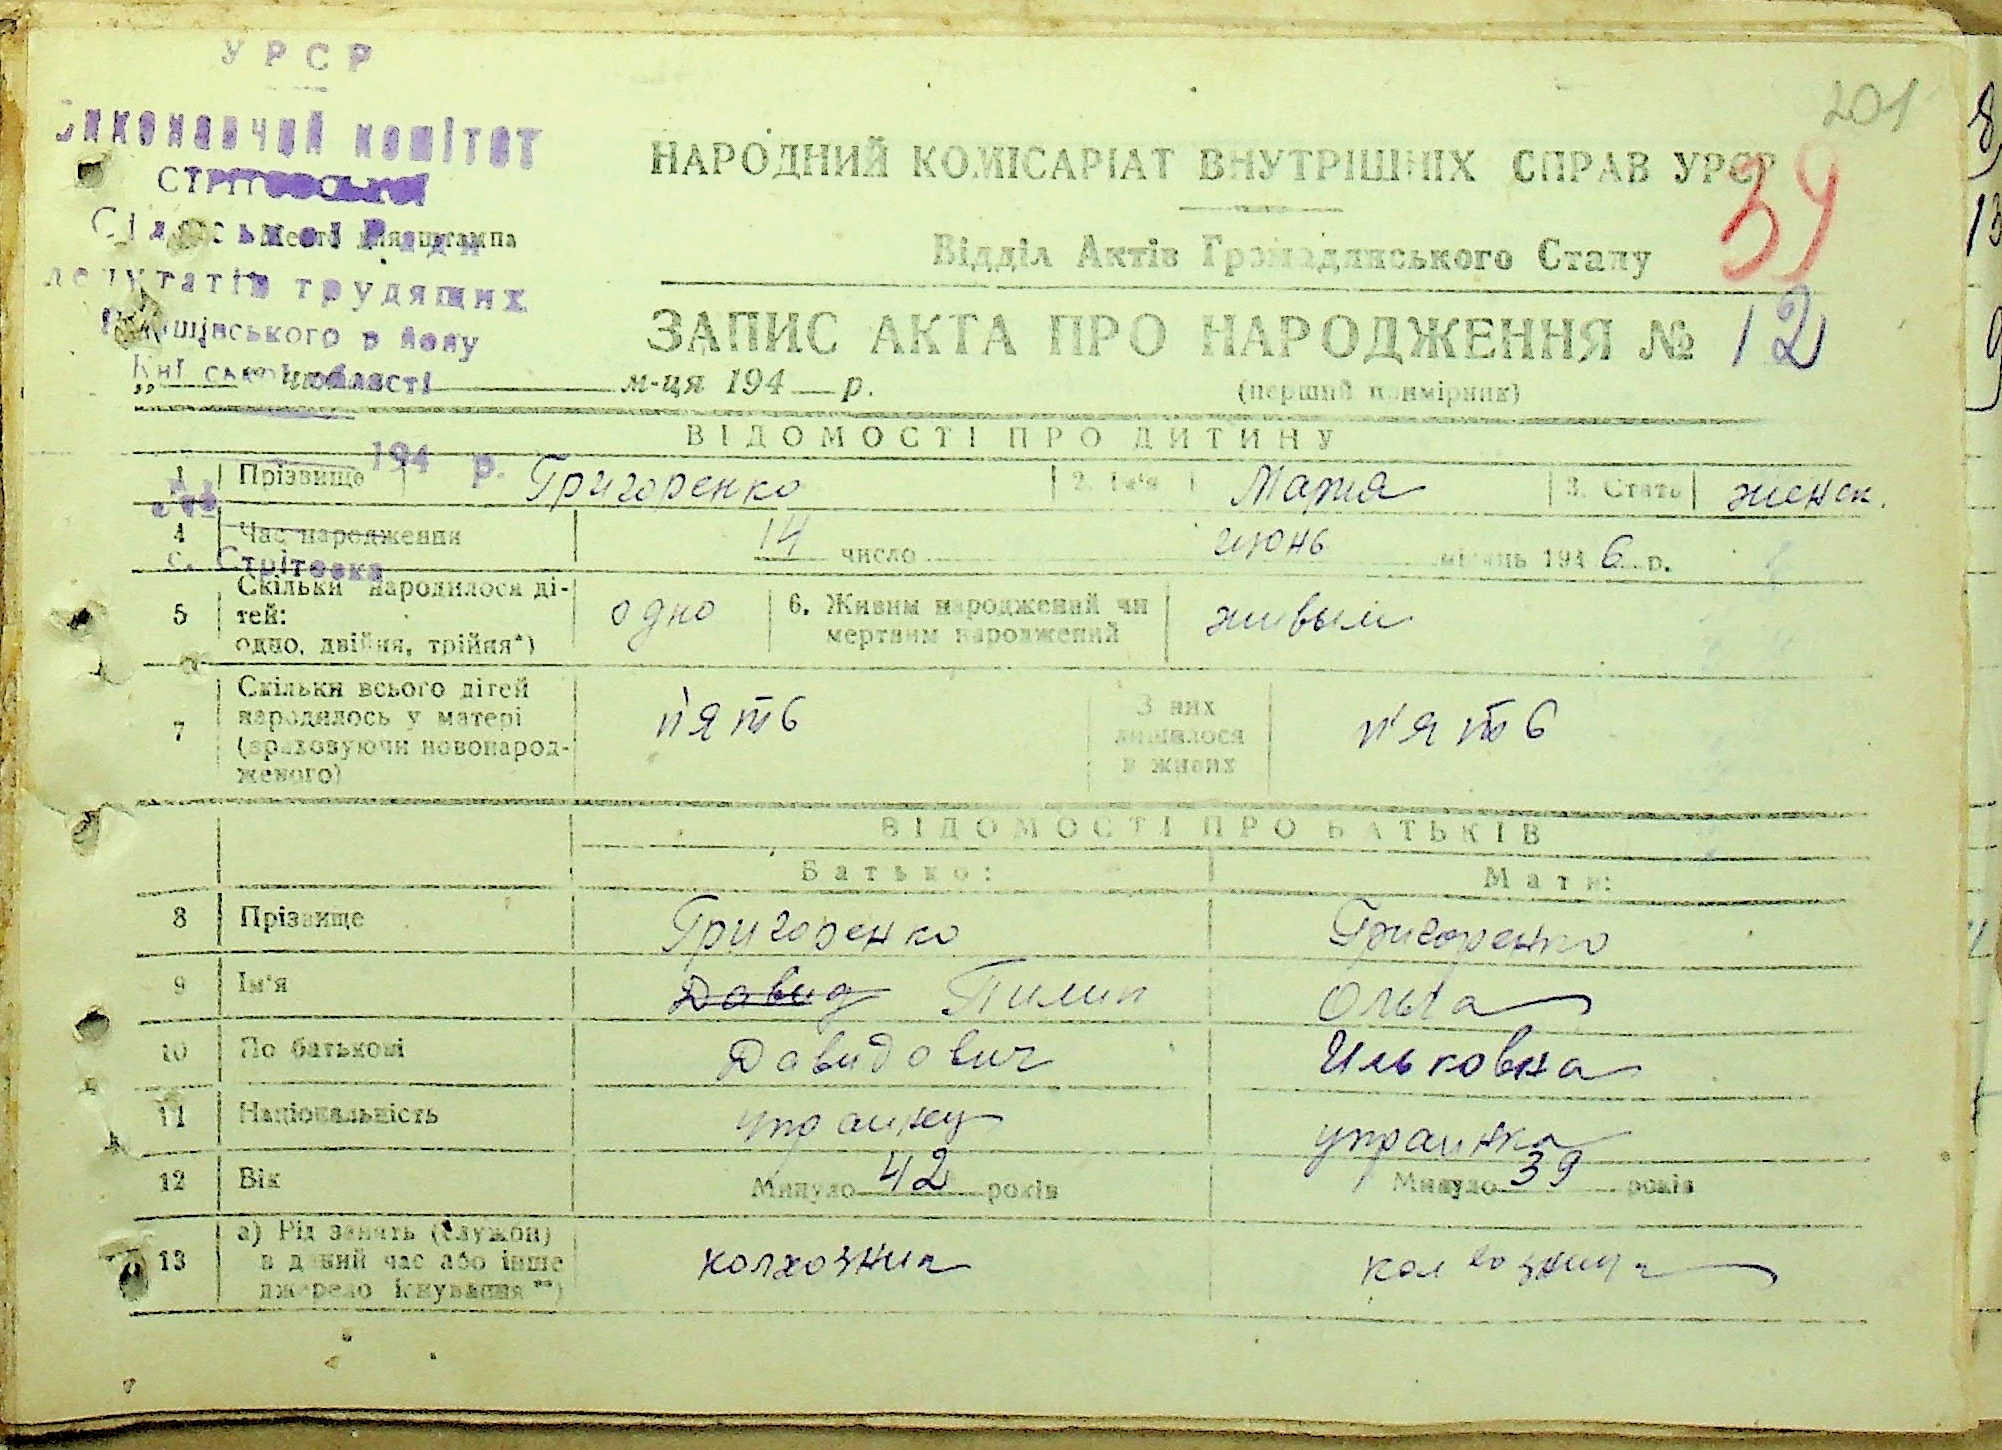 УРСР
201
Виконавчий комітет
Стрітовської
Сільської Ради
Место для штампа
депутатів трудящих
НАРОДНИЙ КОМІСАРІАТ ВНУТРІШНІХ СПРАВ УРСР
39
Відділ Актів Громадянського Стану
ЗАПИС АКТА ПРО НАРОДЖЕННЯ № 12
області
м-ця 194 р.
(перший примірник)
194 р.
ВІДОМОСТІ ПРО ДИТИНУ
1 Прізвище Григоренко 2. Ім'я Мария 3. Стать женск.
4 Час народження 14 число июнь місяць 1946 р.
с. Стрітовка
5 Скільки народилося ді-
тей:
одно, двійня, трійня*)
одно
6. Живим народжений чи
мертвим народжений
живым
7 Скільки всього дітей
народилось у матері
(враховуючи новонарод-
женого)
п'ять
З них
лишилося
в живих
п'ять
ВІДОМОСТІ ПРО БАТЬКІВ
Батько: Мати:
8 Прізвище Григоренко Григоренко
9 Ім'я Давид Пилип Ольга
10 По батькові Давидович Ильковна
11 Національність украинец украинка
12 Вік Минуло 42 років Минуло 39 років
13 а) Рід занять (служби)
в даний час або інше
джерело існування**)
колхозник колхозница